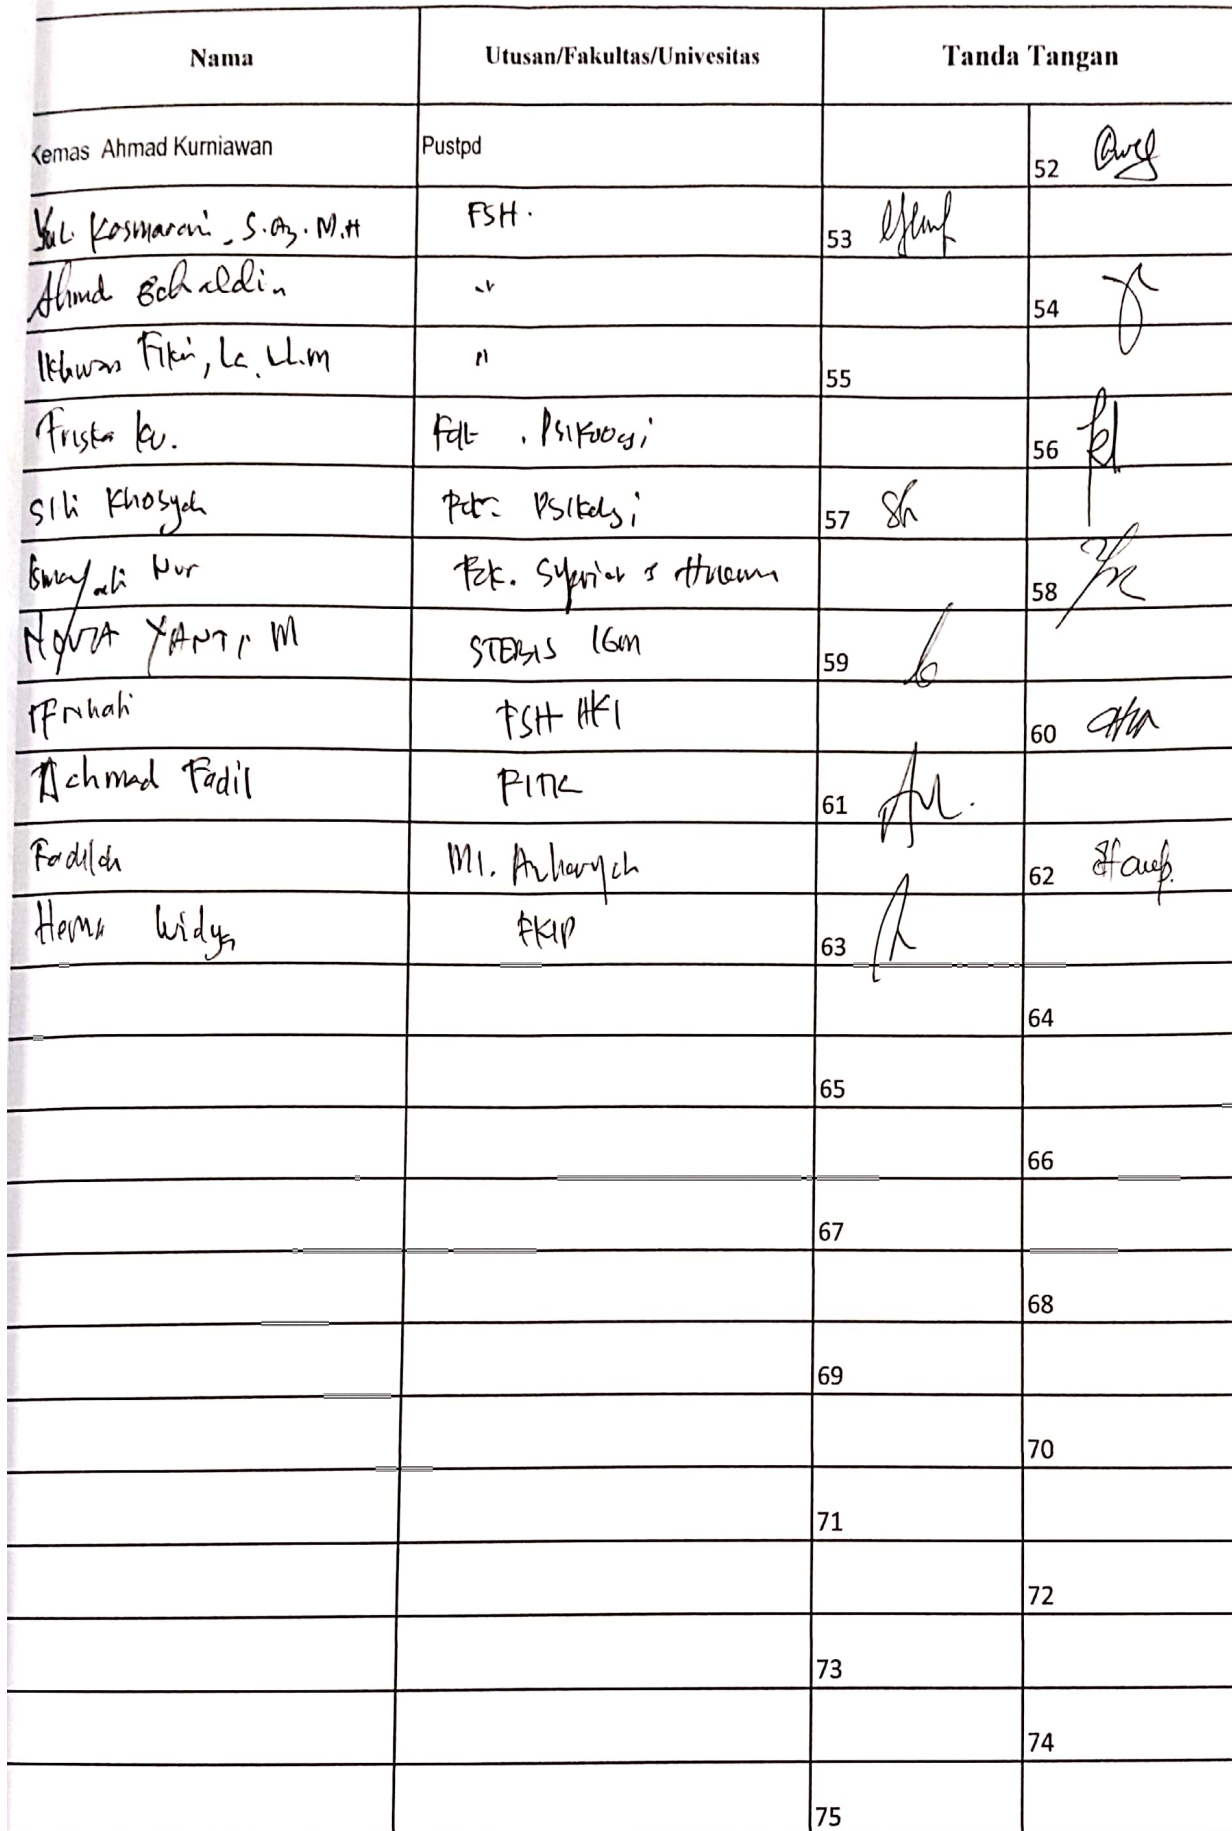 Nama Utusan/Fakultas/Univesitas Tanda Tangan
Kemas Ahmad Kurniawan Pustpd 52
Yuli Kasmarani, S.Ag. M.H FSH. 53
Ahmd " 54
Ikhwan Fikri, Lc. LL.M " 55
Friska Fak. Psikologi 56
Siti Khosyah Fak. Psikologi 57
Nur Fak. Syariah & Hukum 58
NOVIA YANTI M STEBIS IGM 59
FSH HKI 60
Achmad Fadil FITK 61
Fadilah MI. Azharyah 62
Herma Widya FKIP 63
64
65
66
67
68
69
70
71
72
73
74
75